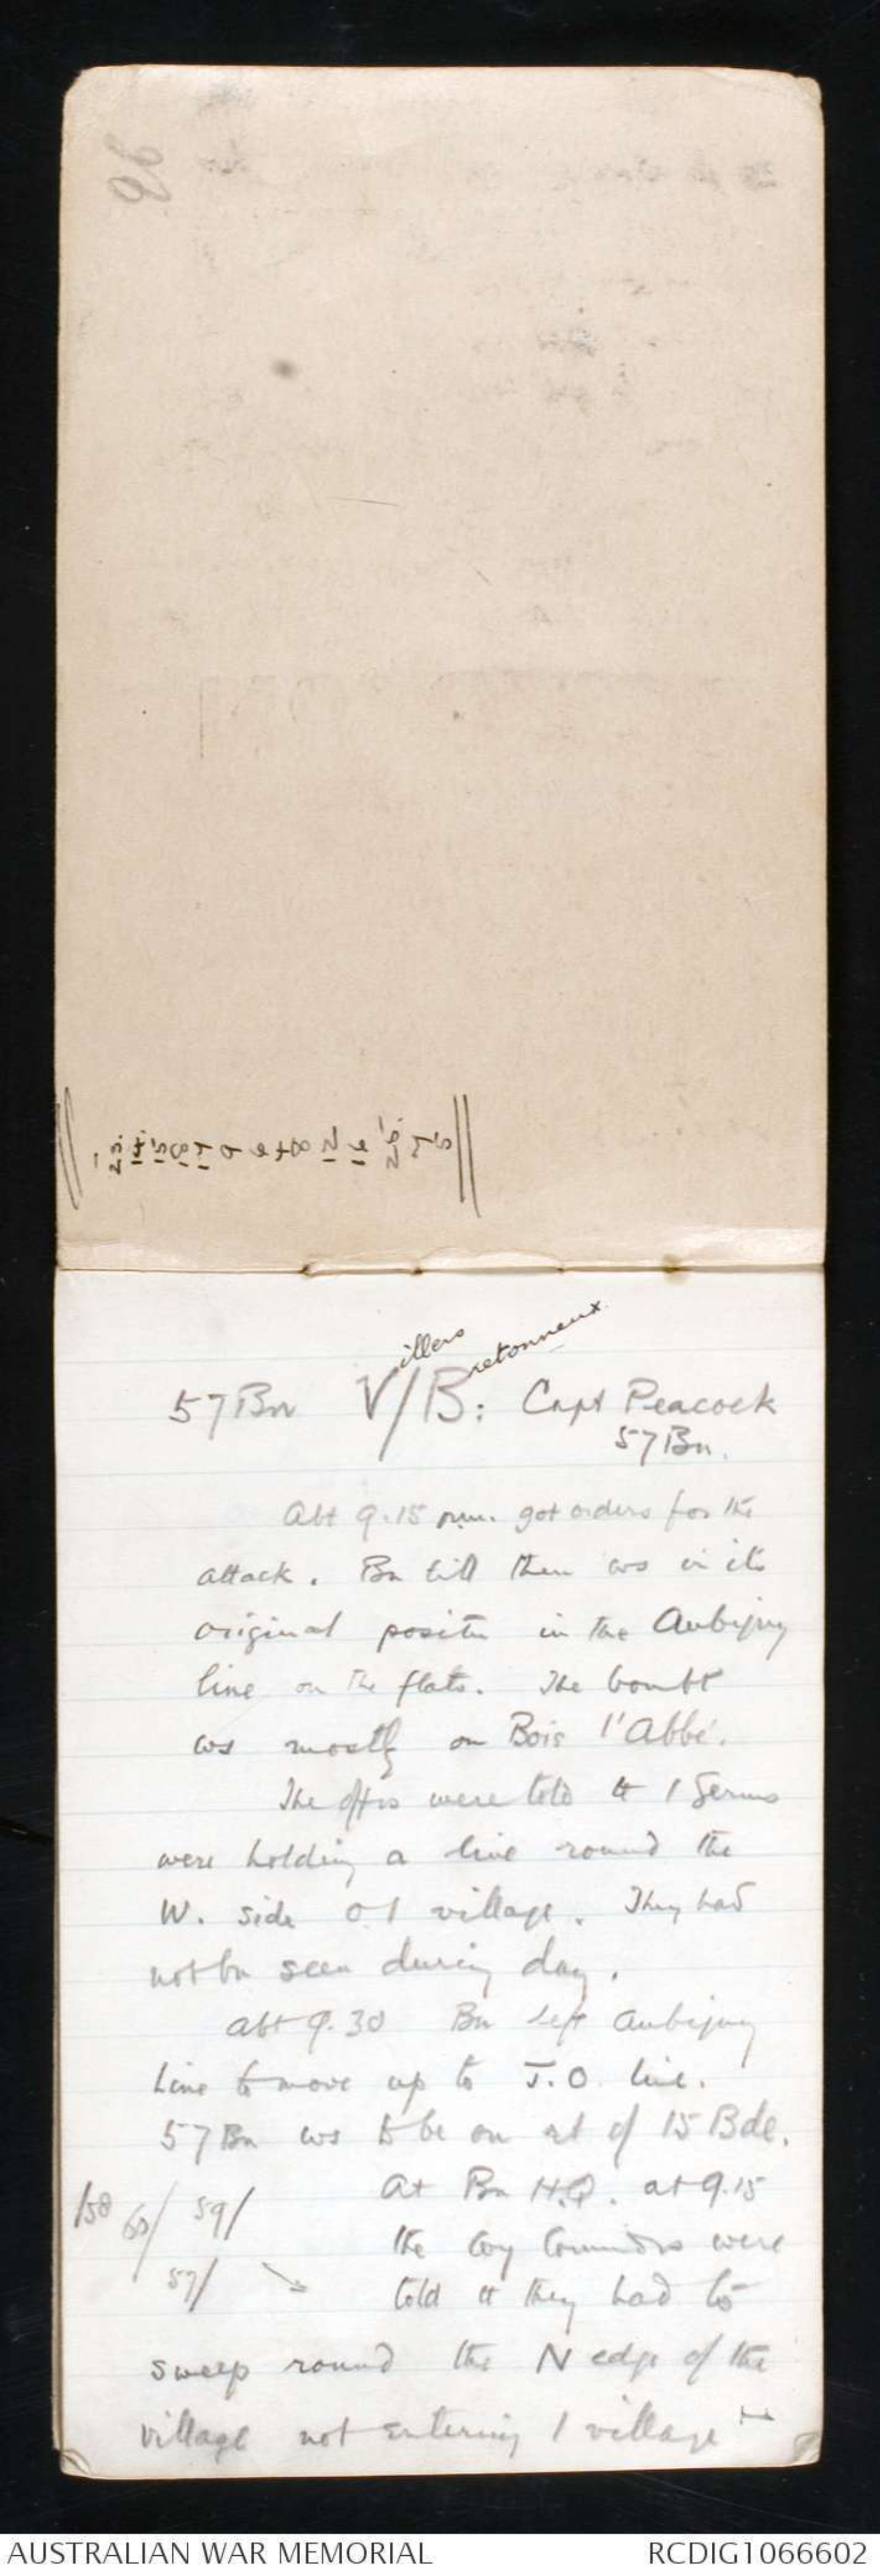 57 Bn V/B: Capt Peacock
illers retonneux
57 Bn.
Abt 9.15 p.m. got orders for the
attack. Bn till then ws in its
original positn in the Aubigny
line on the flats. The bombt
ws mostly on Bois l'Abbé.
The offrs were told tt / Germs
were holding a line round the
W. side o / village. They had
not bn seen during day.
Abt 9.30 Bn left Aubigny
Line to move up to J.O. line.
57 Bn ws to be on rt of 15 Bde.
/58 60/ 59/
57/
At Bn H.Q. at 9.15
the Coy Commdrs were
told tt they had to
sweep round the N edge of the
village not entering / village
AUSTRALIAN WAR MEMORIAL
RCDIG1066602